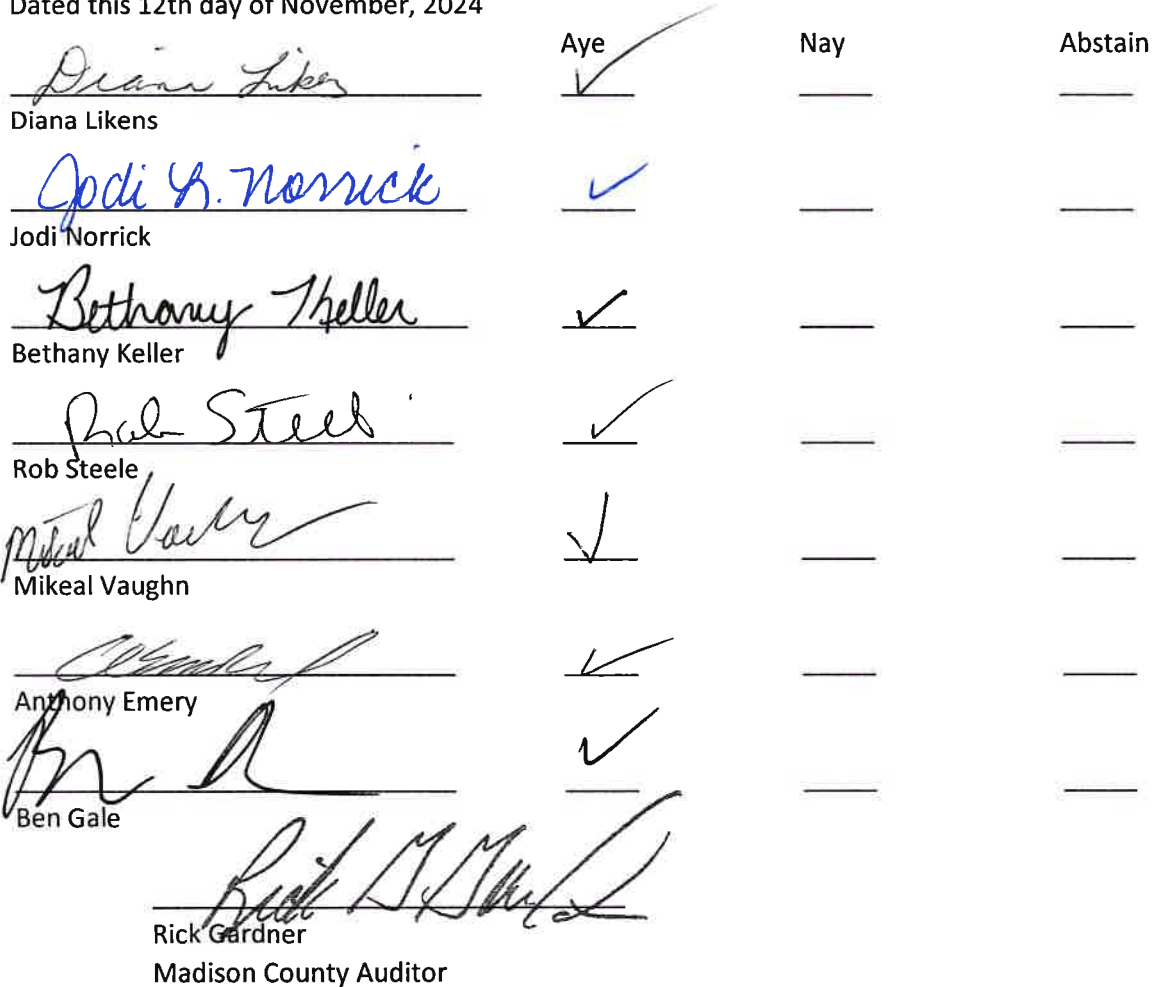 Dated this 12th day of November, 2024
Aye Nay Abstain
Diana Likens
Diana Likens
Jodi L. Norrick
Jodi Norrick
Bethany Keller
Bethany Keller
Rob Steele
Rob Steele
Mikeal Vaughn
Mikeal Vaughn
Anthony Emery
Ben Gale
Rick G. Gardner
Rick Gardner
Madison County Auditor